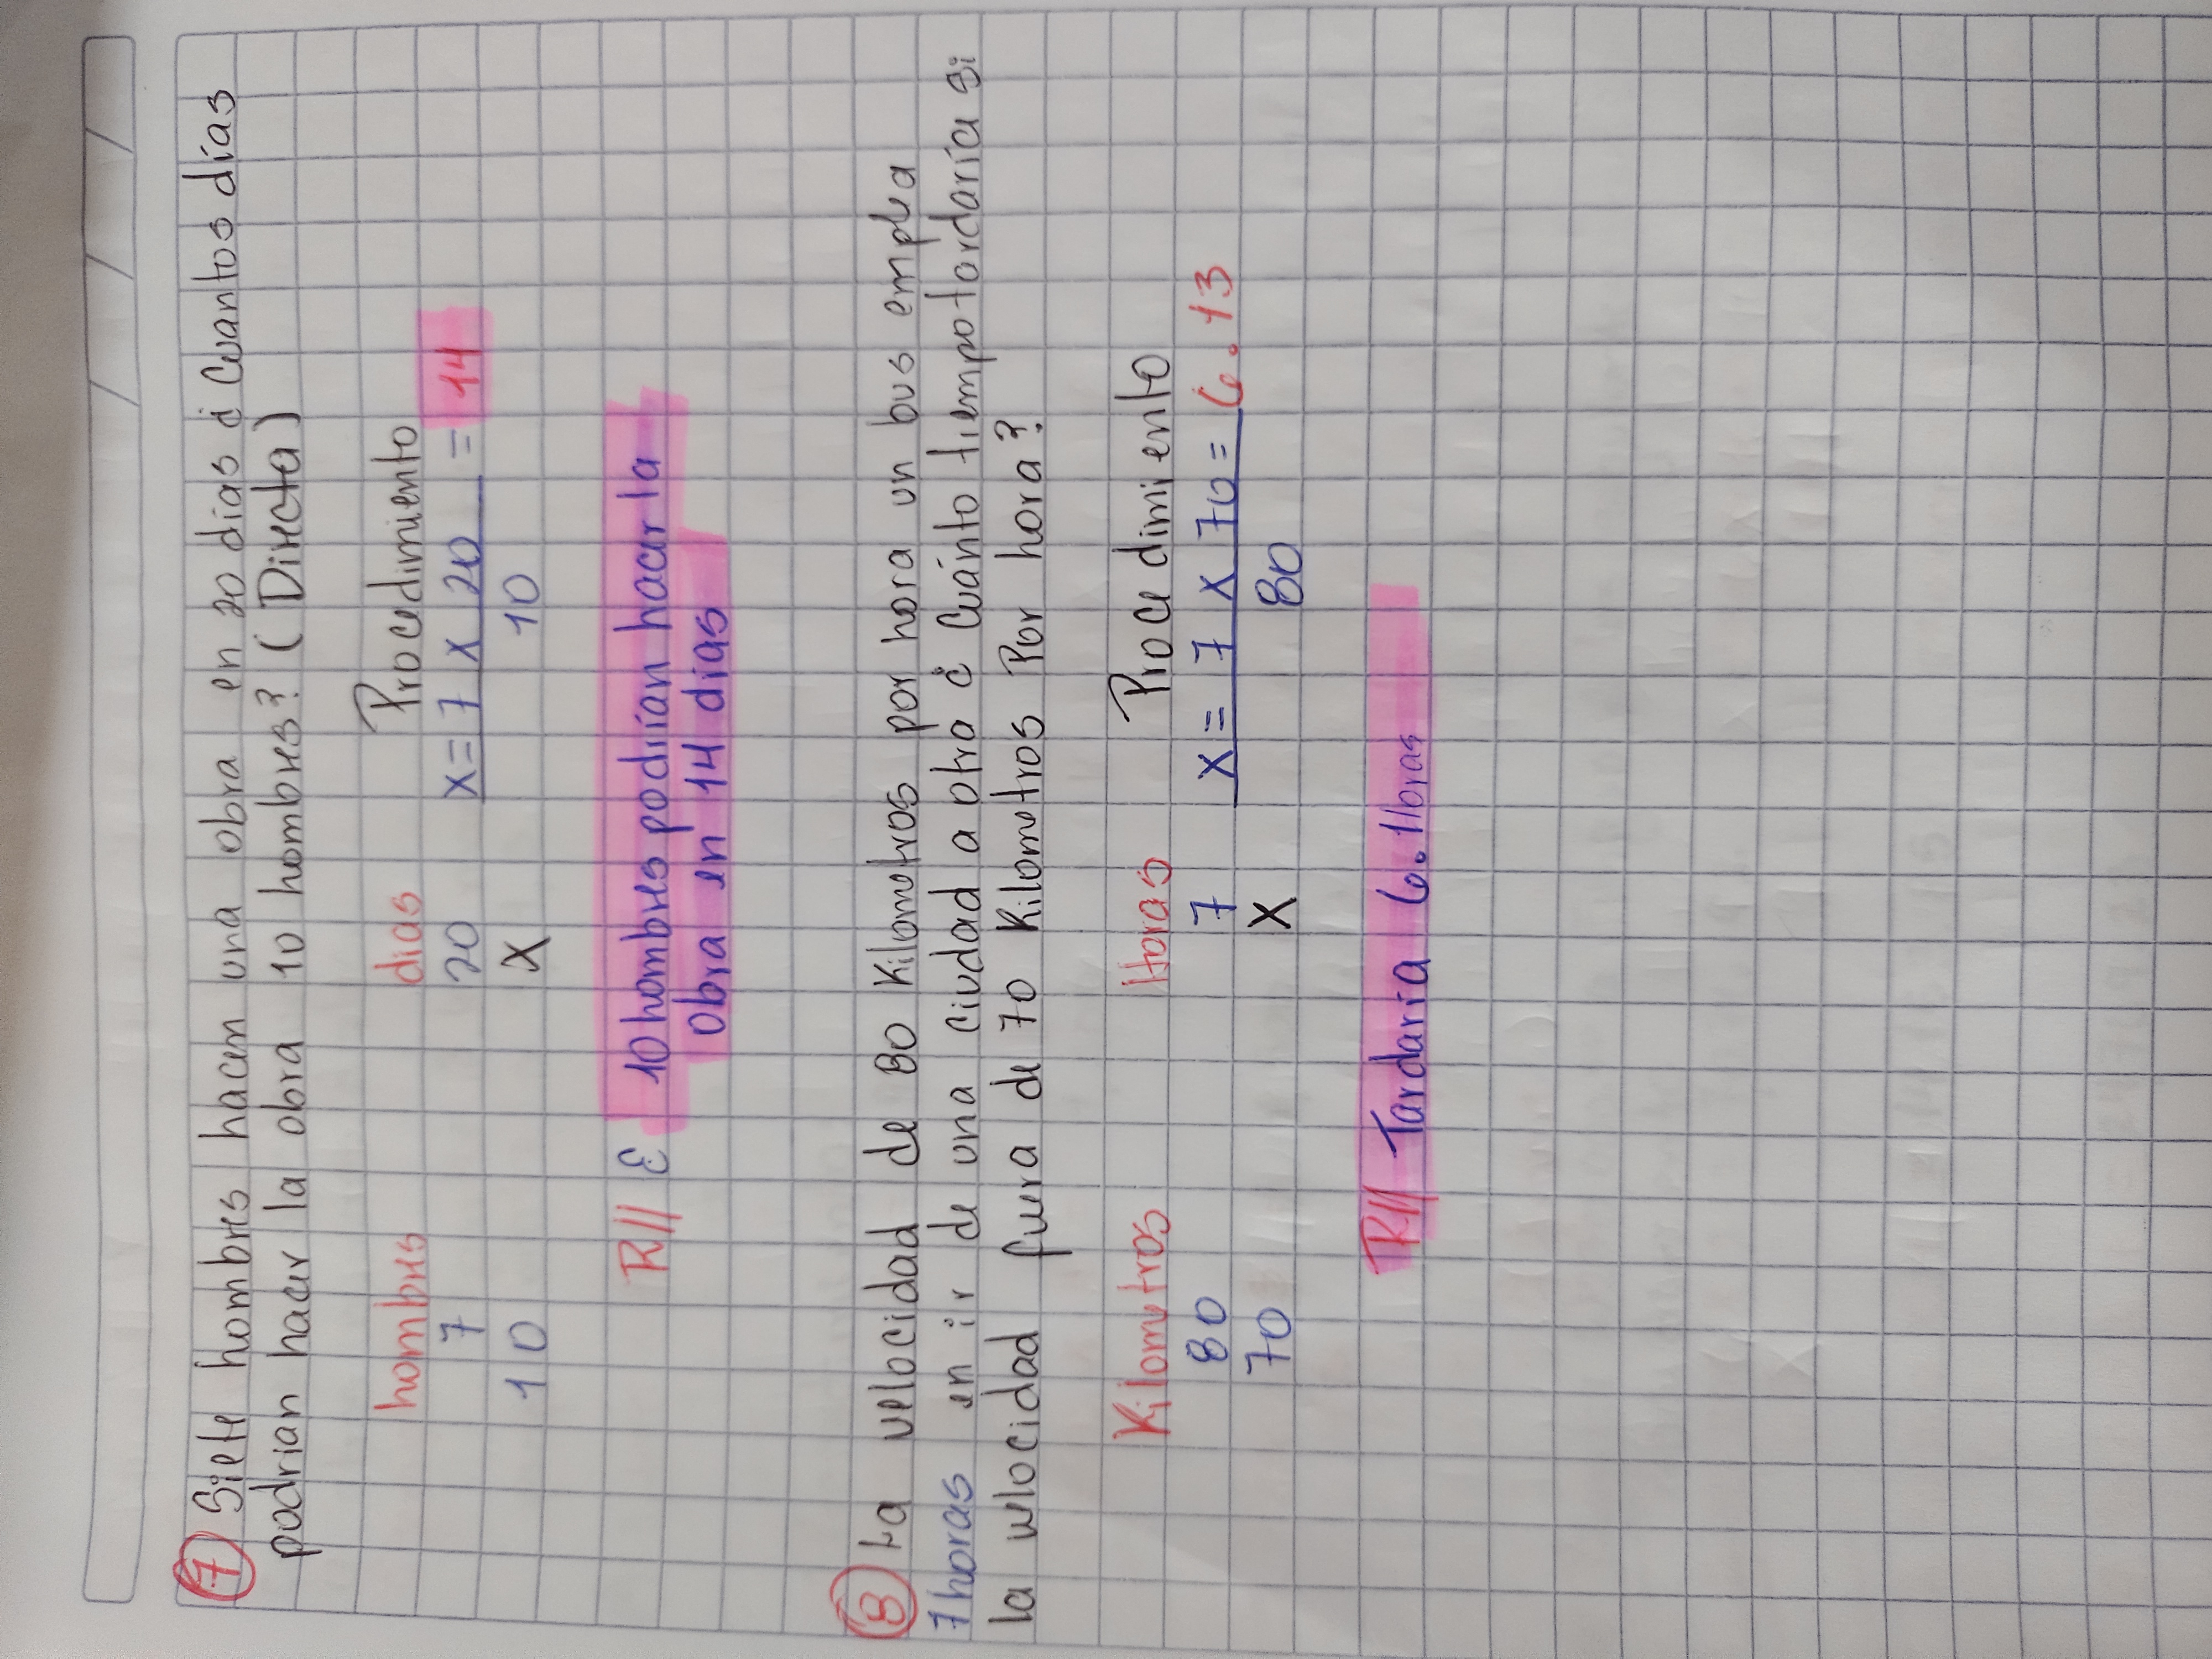 7 Siete hombres hacen una obra en 20 dias ¿ Cuantos días
podrian hacer la obra 10 hombres? ( Directa)
hombres dias Procedimiento
7 20 x = 7 x 20 = 14
10 X 10
R// E 10 hombres podrían hacer la
Obra en 14 dias
8 La velocidad de 80 Kilometros por hora un bus emplea
7 horas en ir de una ciudad a otra ¿ Cuánto tiempo tardaría si
la velocidad fuera de 70 Kilometros Por hora?
Kilometros Horas Procedimiento
80 7 X = 7 x 70 = 6.13
70 X 80
R// Tardaría 6.1 horas